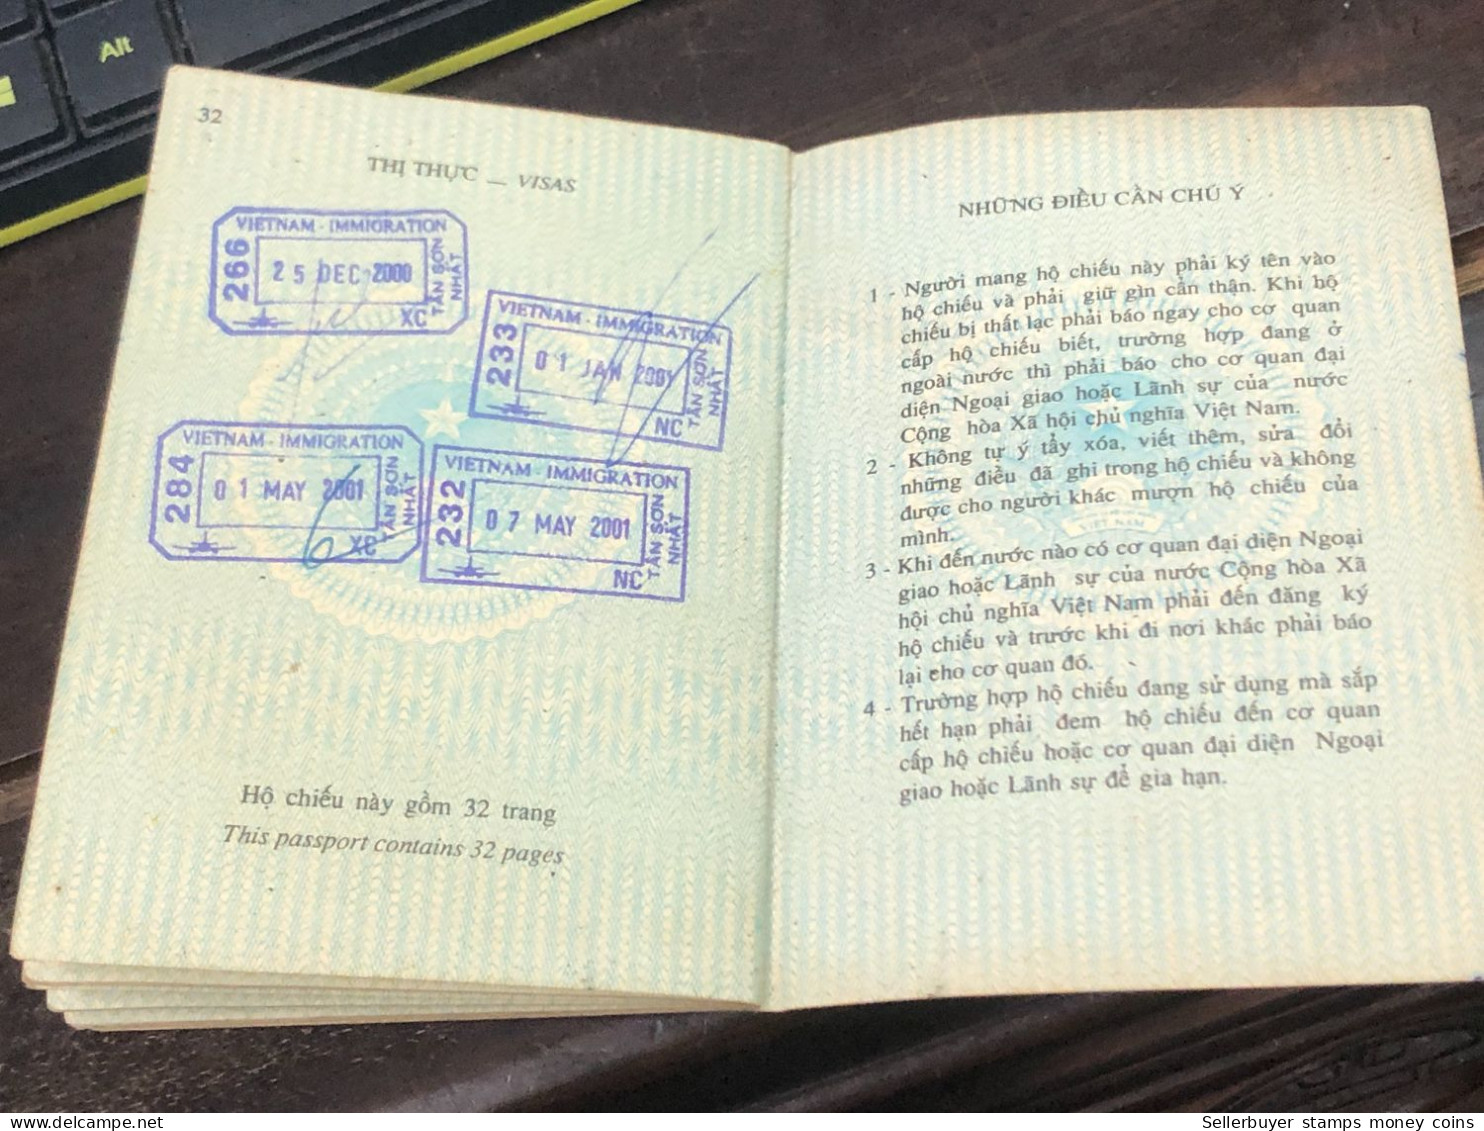 Alt
32
THỊ THỰC — VISAS
VIETNAM - IMMIGRATION
266
25 DEC 2000
TÂN SƠN
NHẤT
XC
VIETNAM - IMMIGRATION
233
01 JAN 2001
TÂN SƠN
NHẤT
NC
VIETNAM - IMMIGRATION
284
01 MAY 2001
TÂN SƠN
NHẤT
XC
VIETNAM - IMMIGRATION
232
07 MAY 2001
TÂN SƠN
NHẤT
NC
Hộ chiếu này gồm 32 trang
This passport contains 32 pages
NHỮNG ĐIỀU CẦN CHÚ Ý
1 - Người mang hộ chiếu này phải ký tên vào
hộ chiếu và phải giữ gìn cẩn thận. Khi hộ
chiếu bị thất lạc phải báo ngay cho cơ quan
cấp hộ chiếu biết, trường hợp đang ở
ngoài nước thì phải báo cho cơ quan đại
diện Ngoại giao hoặc Lãnh sự của nước
Cộng hòa Xã hội chủ nghĩa Việt Nam.
2 - Không tự ý tẩy xóa, viết thêm, sửa đổi
những điều đã ghi trong hộ chiếu và không
được cho người khác mượn hộ chiếu của
mình.
3 - Khi đến nước nào có cơ quan đại diện Ngoại
giao hoặc Lãnh sự của nước Cộng hòa Xã
hội chủ nghĩa Việt Nam phải đến đăng ký
hộ chiếu và trước khi đi nơi khác phải báo
lại cho cơ quan đó.
4 - Trường hợp hộ chiếu đang sử dụng mà sắp
hết hạn phải đem hộ chiếu đến cơ quan
cấp hộ chiếu hoặc cơ quan đại diện Ngoại
giao hoặc Lãnh sự để gia hạn.
VIỆT NAM
Sellerbuyer stamps money coins